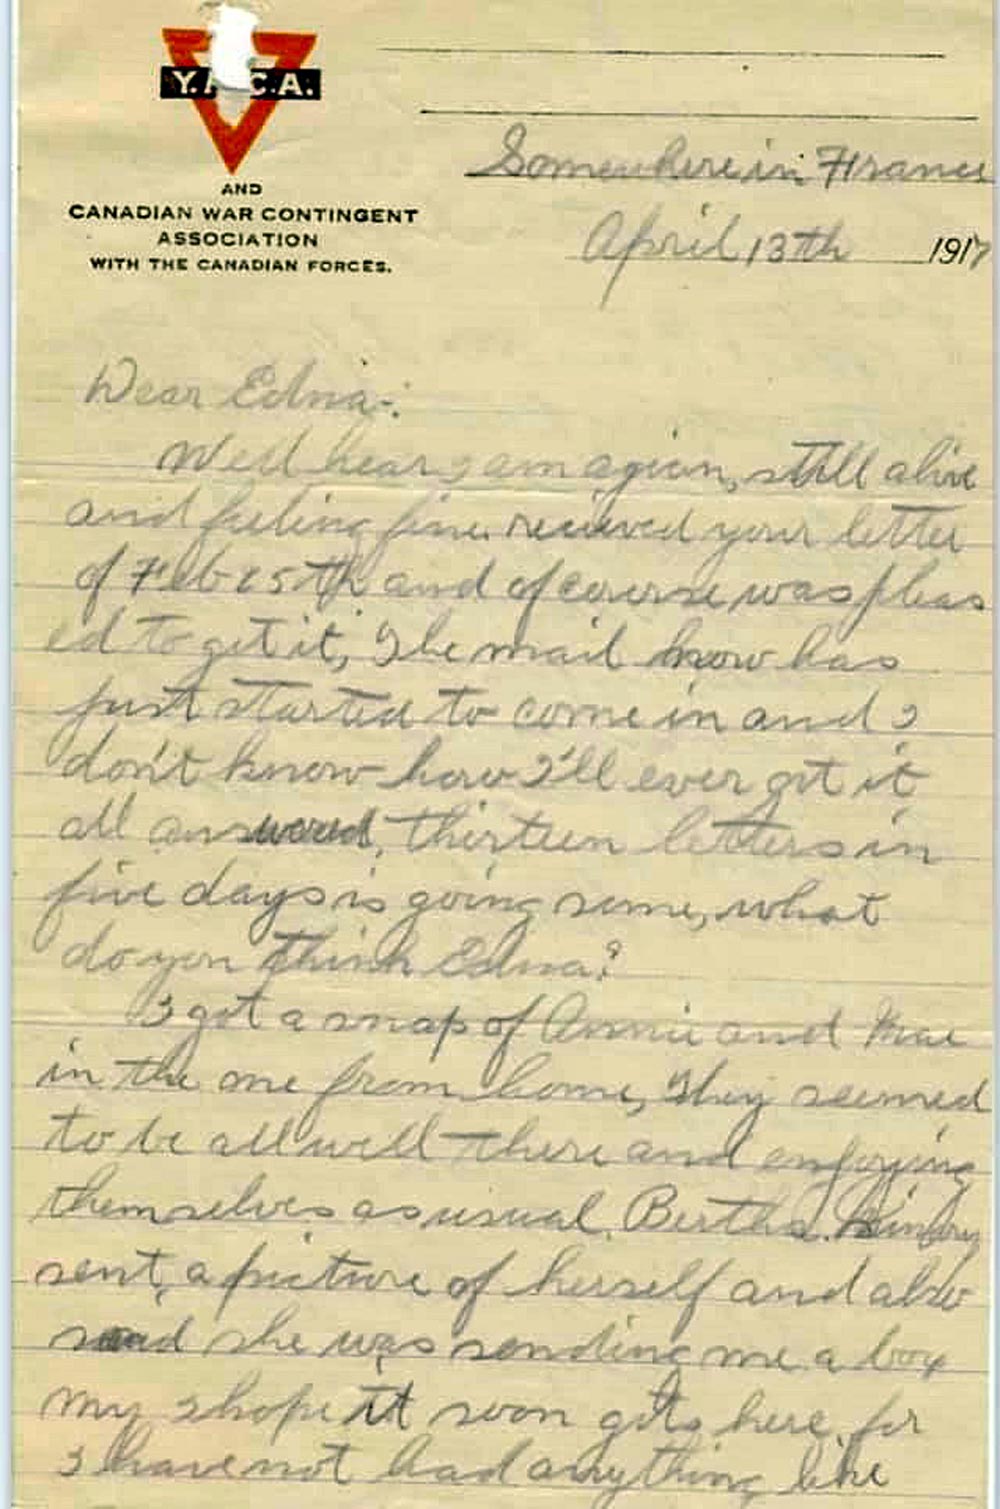 Y.M.C.A.
AND
CANADIAN WAR CONTINGENT
ASSOCIATION
WITH THE CANADIAN FORCES.
Somewhere in France
April 13th 1917
Dear Edna:
Well hear I am agian, still alive
and feeling fine. recieved your letter
of Feb 25th and of course was pleas
ed to get it, The mail know has
just started to come in and I
don't know how I'll ever get it
all answered, thirteen letters in
five days is going some, what
do you think Edna?
I got a snap of Annie and Mae
in the one from home, They seemed
to be all well there and enjoying
themselves as usual. Bertha
sent a picture of herself and also
said she was sending me a box
my I hope it soon gets here for
I have not had anything like